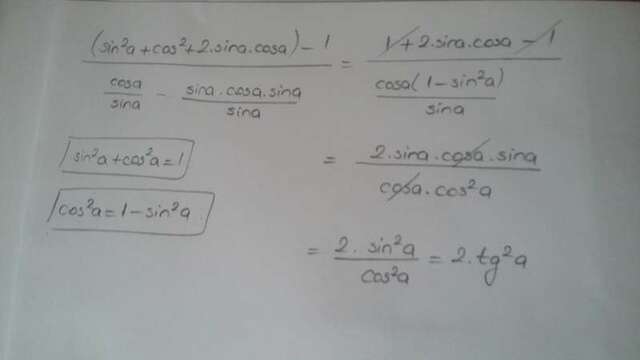 (sin²a + cos² + 2.sina.cosa) - 1 / (cosa/sina - sina.cosa.sina/sina) = 1 + 2.sina.cosa - 1 / (cosa(1 - sin²a)/sina)
sin²a + cos²a = 1
= 2.sina.cosa.sina / cosa.cos²a
cos²a = 1 - sin²a.
= 2. sin²a / cos²a = 2.tg²a